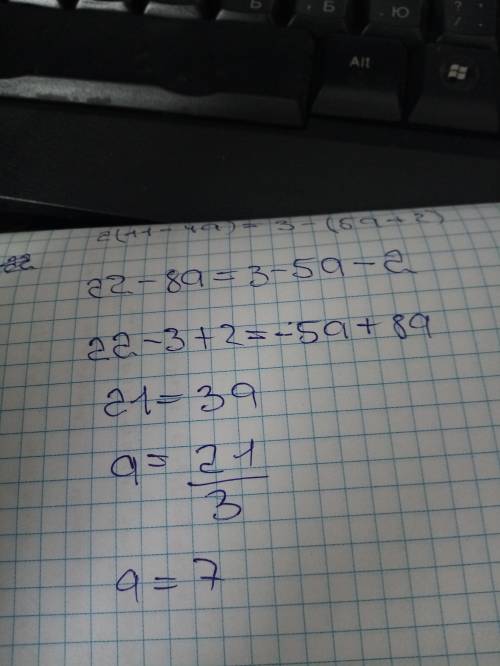 Б Б Ю
Alt
2(11-4a)=3-(5a+2)
22-8a=3-5a-2
22-3+2=-5a+8a
21=3a
a=21/3
a=7